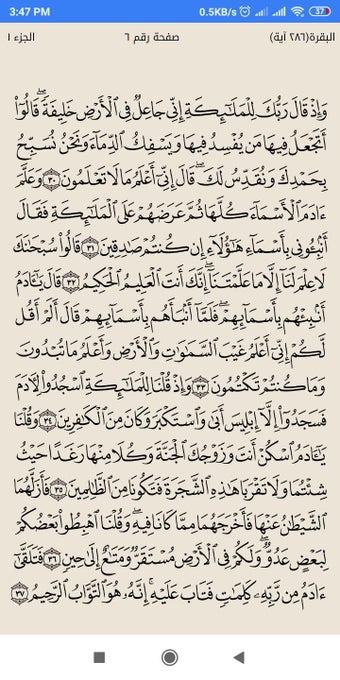 3:47 PM 0.5KB/s 37
البقرة(٢٨٦ آية) صفحة رقم ٦ الجزء ١
وَإِذْ قَالَ رَبُّكَ لِلْمَلَٰٓئِكَةِ إِنِّى جَاعِلٌ فِى ٱلْأَرْضِ خَلِيفَةً ۖ قَالُوٓا۟
أَتَجْعَلُ فِيهَا مَن يُفْسِدُ فِيهَا وَيَسْفِكُ ٱلدِّمَآءَ وَنَحْنُ نُسَبِّحُ
بِحَمْدِكَ وَنُقَدِّسُ لَكَ ۖ قَالَ إِنِّىٓ أَعْلَمُ مَا لَا تَعْلَمُونَ ٣٠ وَعَلَّمَ
ءَادَمَ ٱلْأَسْمَآءَ كُلَّهَا ثُمَّ عَرَضَهُمْ عَلَى ٱلْمَلَٰٓئِكَةِ فَقَالَ
أَنۢبِـُٔونِى بِأَسْمَآءِ هَٰٓؤُلَآءِ إِن كُنتُمْ صَٰدِقِينَ ٣١ قَالُوا۟ سُبْحَٰنَكَ
لَا عِلْمَ لَنَآ إِلَّا مَا عَلَّمْتَنَآ ۖ إِنَّكَ أَنتَ ٱلْعَلِيمُ ٱلْحَكِيمُ ٣٢ قَالَ يَٰٓـَٔادَمُ
أَنۢبِئْهُم بِأَسْمَآئِهِمْ ۖ فَلَمَّآ أَنۢبَأَهُم بِأَسْمَآئِهِمْ قَالَ أَلَمْ أَقُل
لَّكُمْ إِنِّىٓ أَعْلَمُ غَيْبَ ٱلسَّمَٰوَٰتِ وَٱلْأَرْضِ وَأَعْلَمُ مَا تُبْدُونَ
وَمَا كُنتُمْ تَكْتُمُونَ ٣٣ وَإِذْ قُلْنَا لِلْمَلَٰٓئِكَةِ ٱسْجُدُوا۟ لِـَٔادَمَ
فَسَجَدُوٓا۟ إِلَّآ إِبْلِيسَ أَبَىٰ وَٱسْتَكْبَرَ وَكَانَ مِنَ ٱلْكَٰفِرِينَ ٣٤ وَقُلْنَا
يَٰٓـَٔادَمُ ٱسْكُنْ أَنتَ وَزَوْجُكَ ٱلْجَنَّةَ وَكُلَا مِنْهَا رَغَدًا حَيْثُ
شِئْتُمَا وَلَا تَقْرَبَا هَٰذِهِ ٱلشَّجَرَةَ فَتَكُونَا مِنَ ٱلظَّٰلِمِينَ ٣٥ فَأَزَلَّهُمَا
ٱلشَّيْطَٰنُ عَنْهَا فَأَخْرَجَهُمَا مِمَّا كَانَا فِيهِ ۖ وَقُلْنَا ٱهْبِطُوا۟ بَعْضُكُمْ
لِبَعْضٍ عَدُوٌّ ۖ وَلَكُمْ فِى ٱلْأَرْضِ مُسْتَقَرٌّ وَمَتَٰعٌ إِلَىٰ حِينٍ ٣٦ فَتَلَقَّىٰٓ
ءَادَمُ مِن رَّبِّهِۦ كَلِمَٰتٍ فَتَابَ عَلَيْهِ ۚ إِنَّهُۥ هُوَ ٱلتَّوَّابُ ٱلرَّحِيمُ ٣٧